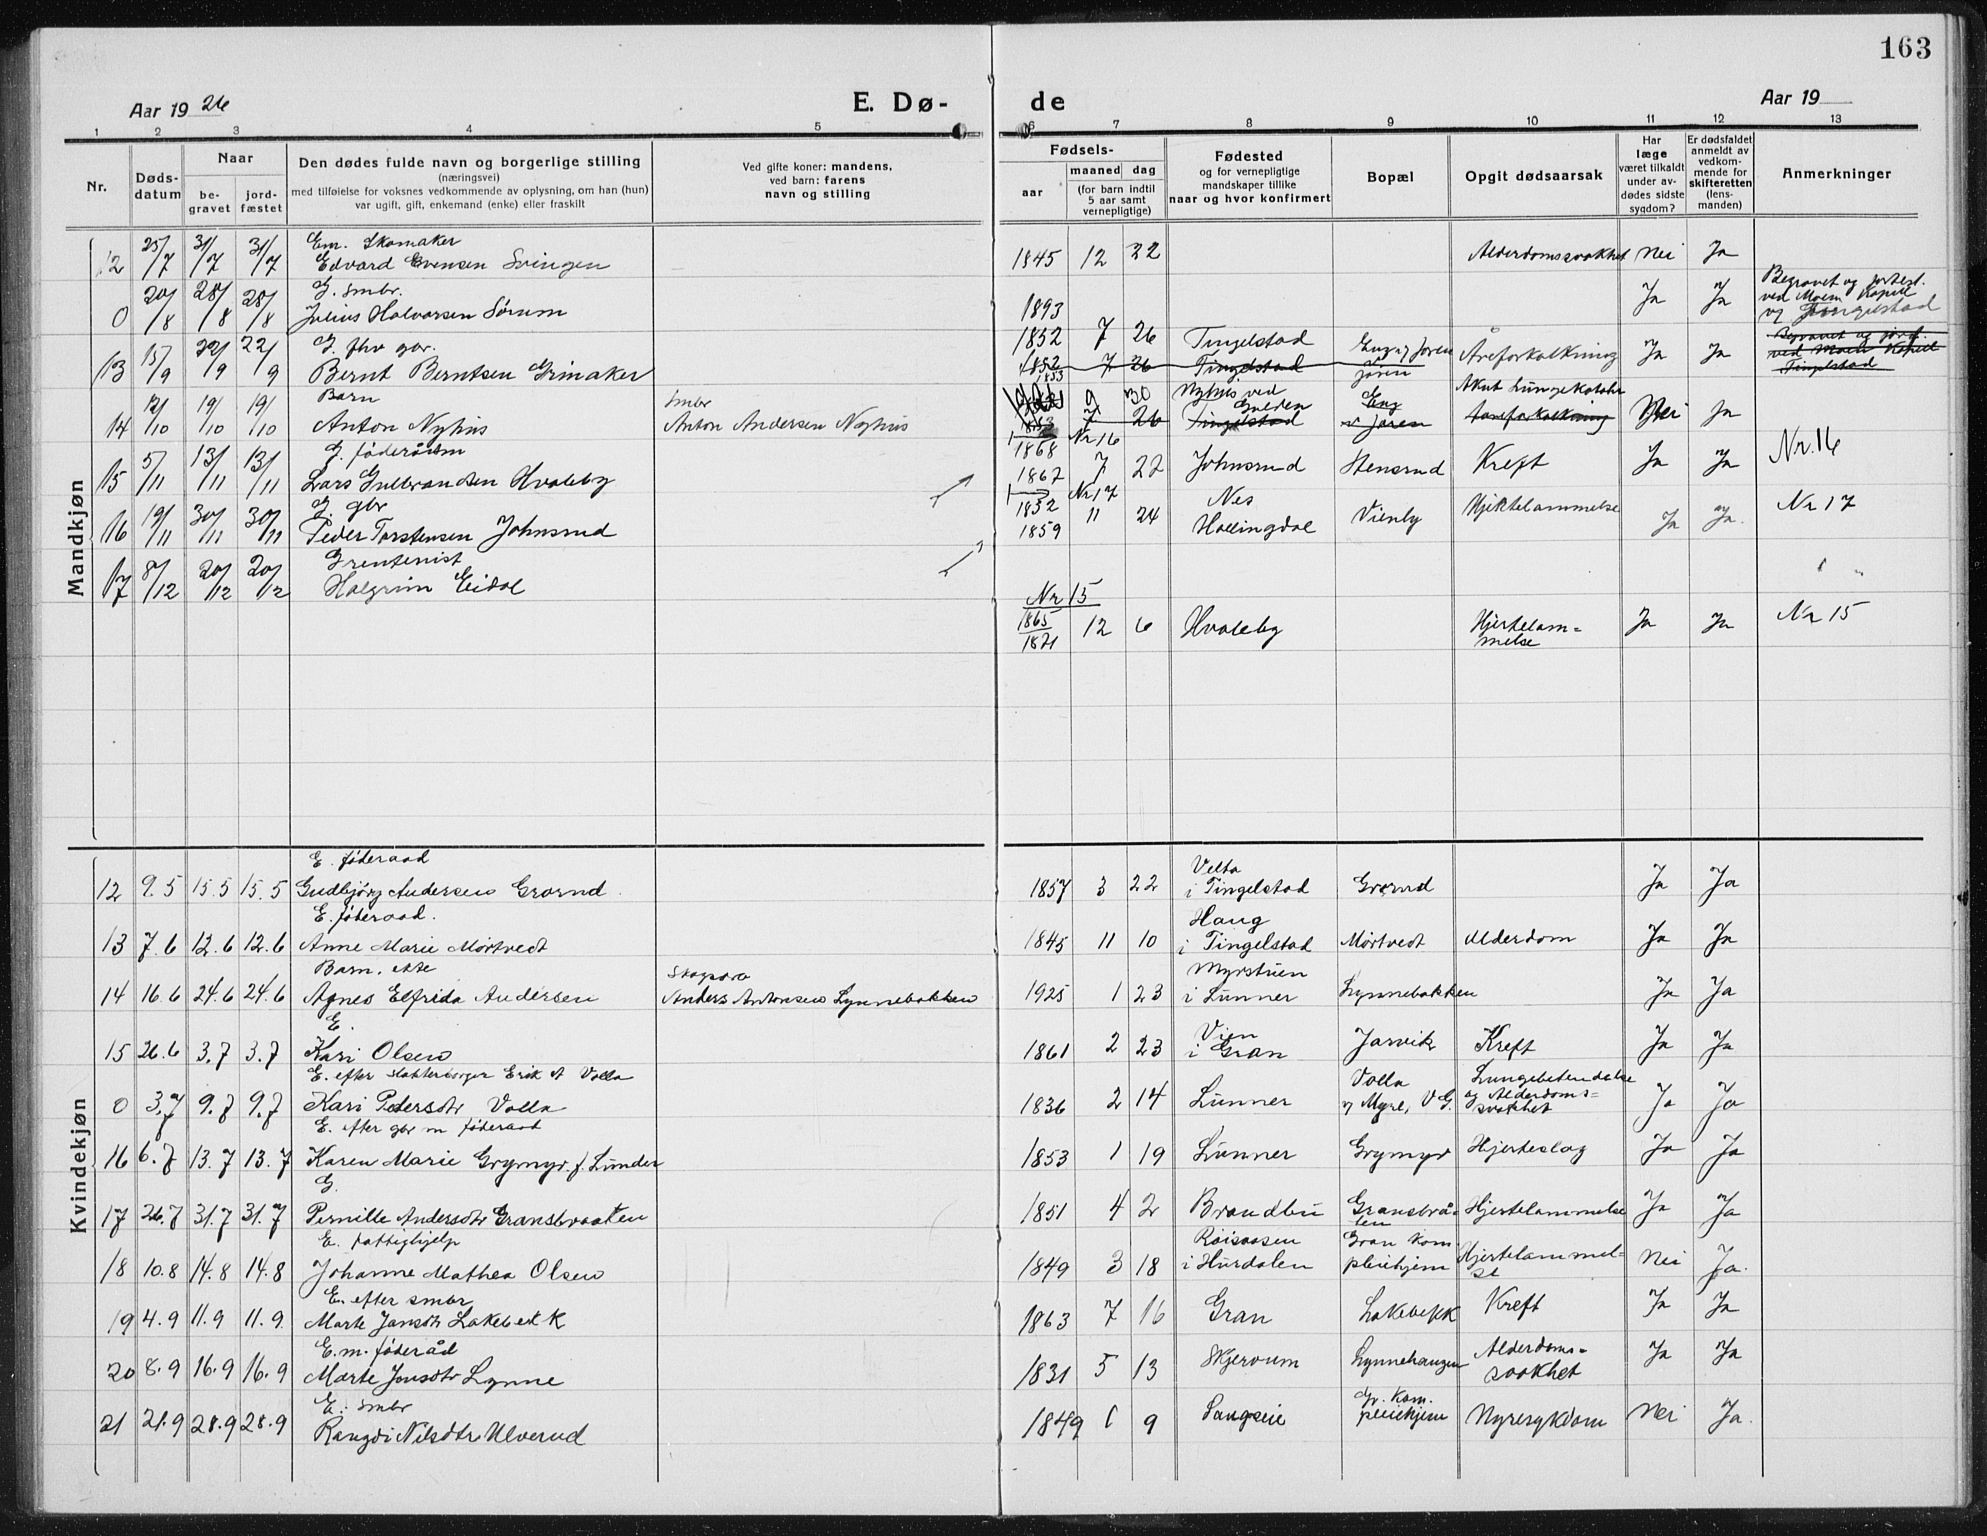 163
Aar 19 26
E. Dø-
de
Aar 19
1 2 3 4 5 6 7 8 9 10 11 12 13
Nr.
Døds-
datum
Naar
be-
gravet
jord-
fæstet
Den dødes fulde navn og borgerlige stilling
(næringsvei)
med tilføielse for voksnes vedkommende av oplysning, om han (hun)
var ugift, gift, enkemand (enke) eller fraskilt
Ved gifte koner: mandens,
ved barn: farens
navn og stilling
Fødsels-
aar
maaned dag
(for barn indtil
5 aar samt
vernepligtige)
Fødested
og for vernepligtige
mandskaper tillike
naar og hvor konfirmert
Bopæl
Opgit dødsaarsak
Har
læge
været tilkaldt
under av-
dødes sidste
sygdom?
Er dødsfaldet
anmeldt av
vedkom-
mende for
skifteretten
(lens-
manden)
Anmerkninger
Mandkjøn
Em. Skomaker
12 25/7 31/7 31/7 Edvard Evensen Svingen 1845 12 22 Alderdomssvakhet Nei Ja
G. smbr.
0 20/8 28/8 28/8 Julius Halvorsen Sørum 1893 Ja Ja Begravet og jordfest.
ved Moen Kapell
og Tingelstad
G. fhv gbr.
13 15/9 22/9 22/9 Bernt Berntsen Grimaker 1852 7 26 Tingelstad Eng v Jaren Åreforkalkning Ja Ja
1852 7 26 Tingelstad Jaren
1853
Begravet og jordf.
ved Moen Kapell
Tingelstad
Barn smbr
14 12/10 19/10 19/10 Anton Nyhus Anton Andersen Nyhus 9 30 Nyhus ved Akut Lungekatarr Nei Ja
1853 7 26 Tingelstad Eng v Jaren Aareforkalkning
G. føderådsm
15 5/11 13/11 13/11 Lars Gulbrandsen Hvaleby
1868 Nr 16
1867 7 22 Johnsrud Stensrud Kreft Ja Ja Nr. 16
G. gbr
16 19/11 30/11 30/11 Peder Torstensen Johnsrud
1852 Nr 17
1859 11 24 Nes
Hallingdal Vienby Hjertelammelse Ja Ja. Nr 17
G rentenist
17 8/12 20/12 20/12 Halgrim Eidal
Nr 15
1865
1821 12 6 Hvaleby Hjertelam=
melse Ja Ja Nr 15
Kvindekjøn
E. føderaad
12 9.5 15.5 15.5 Gudbjørg Andersen Grorud 1857 3 22 Velta
i Tingelstad Grorud Ja Ja
E. føderaad.
13 7.6 12.6 12.6 Anne Marie Mørtvedt 1845 11 10 Haug
i Tingelstad Mørtvedt Alderdom Ja Ja
Barn, ekte Skogsarb
14 16.6 24.6 24.6 Agnes Elfrida Andersen Anders Antonsen Lynnebakken 1925 1 23 Myrstuen
i Lunner Lynnebakken Ja Ja
E.
15 26.6 3.7 3.7 Kari Olsen 1861 2 23 Vien
i Gran Jarvik Kreft Ja Ja
E. efter Erik A Volla
0 3.7 9.7 9.7 Kari Pedersdtr Volla 1836 2 14 Lunner Volla
v Myre, V G. Lungebetendelse
og Alderdoms=
svakhet Ja Ja
E. efter gbr m føderaad
16 6.7 13.7 13.7 Karen Marie Grymyr f. Lunder 1853 1 19 Lunner Grymyr Hjerteslag Ja Ja
G.
17 26.7 31.7 31.7 Pernille Andersdtr Gransbraaten 1851 4 2 Brandbu Gransbrå-
ten Hjertelammelse Ja Ja
E. fattighjelp
18 10.8 14.8 14.8 Johanne Mathea Olsen 1849 3 18 Røisaasen
i Hurdalen Gran kom
pleiehjem Hjertelammel=
se Nei Ja.
E. efter smbr
19 4.9 11.9 11.9 Marte Jansdtr Lakebekk 1863 7 16 Gran Lakebekk Kreft Ja Ja
E.m. føderåd
20 8.9 16.9 16.9 Marte Jonsdtr Lynne 1831 5 13 Skjervum Lynnehaugen Alderdoms=
svakhet Ja Ja
E. smbr
21 21.9 28.9 28.9 Rangdi Nilsdtr Ulverud 1849 1 9 Sangseie Gr. Kom.
pleiehjem Nyresykdom Nei Ja.